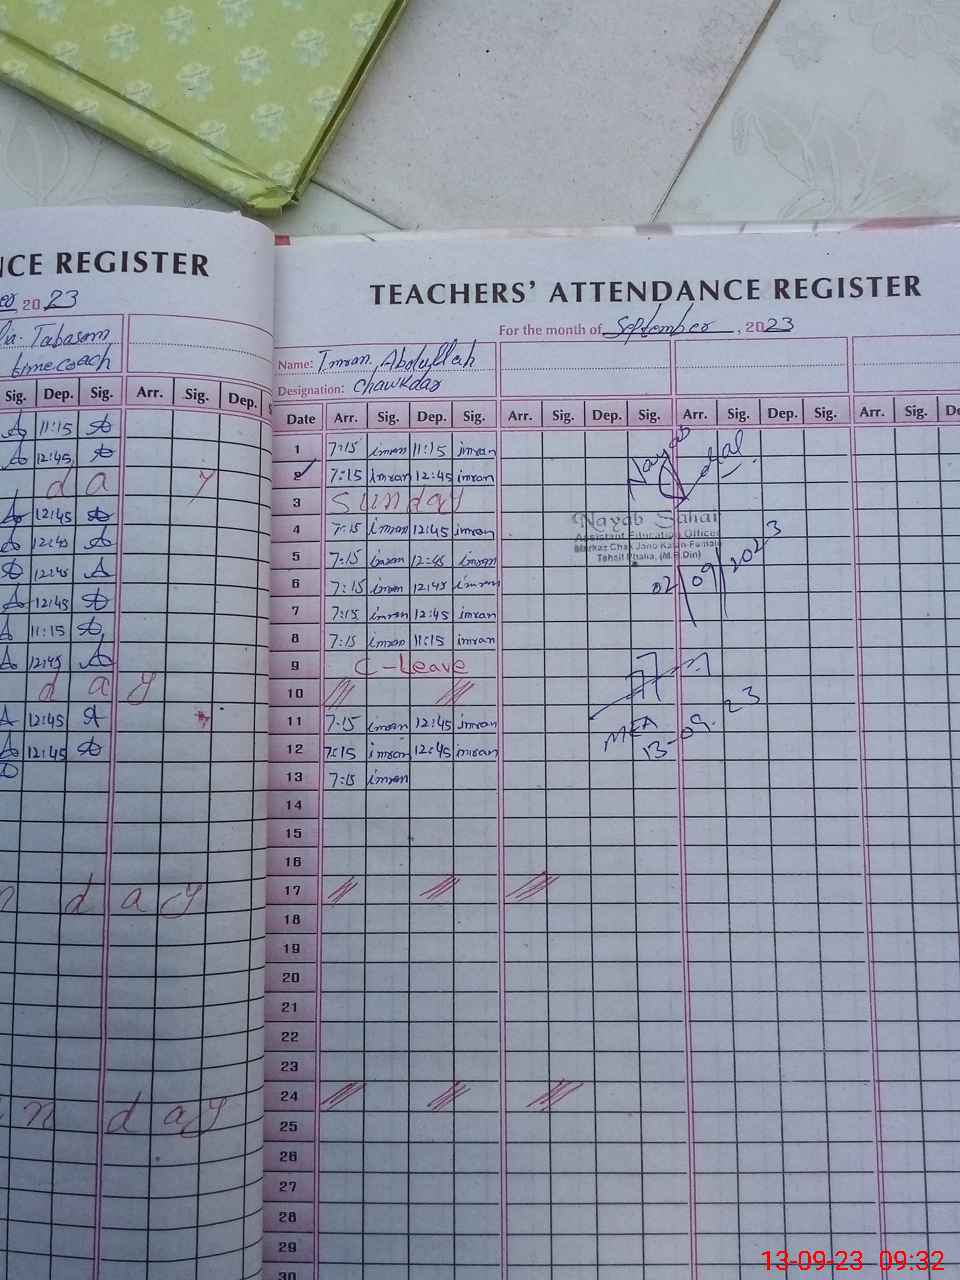 NCE REGISTER
20 23
Tabasam
timecoach
Sig. Dep. Sig. Arr. Sig. Dep. S
11:15
12:45
d a y
12:45
12:45
12:45
12:45
11:15
12:45
d a y
12:45
12:45
n d a y
n d a y
TEACHERS' ATTENDANCE REGISTER
For the month of September, 2023
Name: Imran, Abdullah
Designation: Chawkdar
Date Arr. Sig. Dep. Sig. Arr. Sig. Dep. Sig. Arr. Sig. Dep. Sig. Arr. Sig. De
1 7:15 imran 11:15 imran
2 7:15 imran 12:45 imran
3 Sunday
4 7:15 imran 12:45 imran
5 7:15 imran 12:45 imran
6 7:15 imran 12:45 imran
7 7:15 imran 12:45 imran
8 7:15 imran 11:15 imran
9 C-Leave
10
11 7:15 imran 12:45 imran
12 7:15 imran 12:45 imran
13 7:15 imran
14
15
16
17
18
19
20
21
22
23
24
25
26
27
28
29
30
Nayab
Nayab Sahar
Assistant Education Officer
Markaz Chak Jano Kalan-Female
Tehsil Phalia, (M.B.Din)
02/09/2023
MEA
13-09-23
13-09-23 09:32